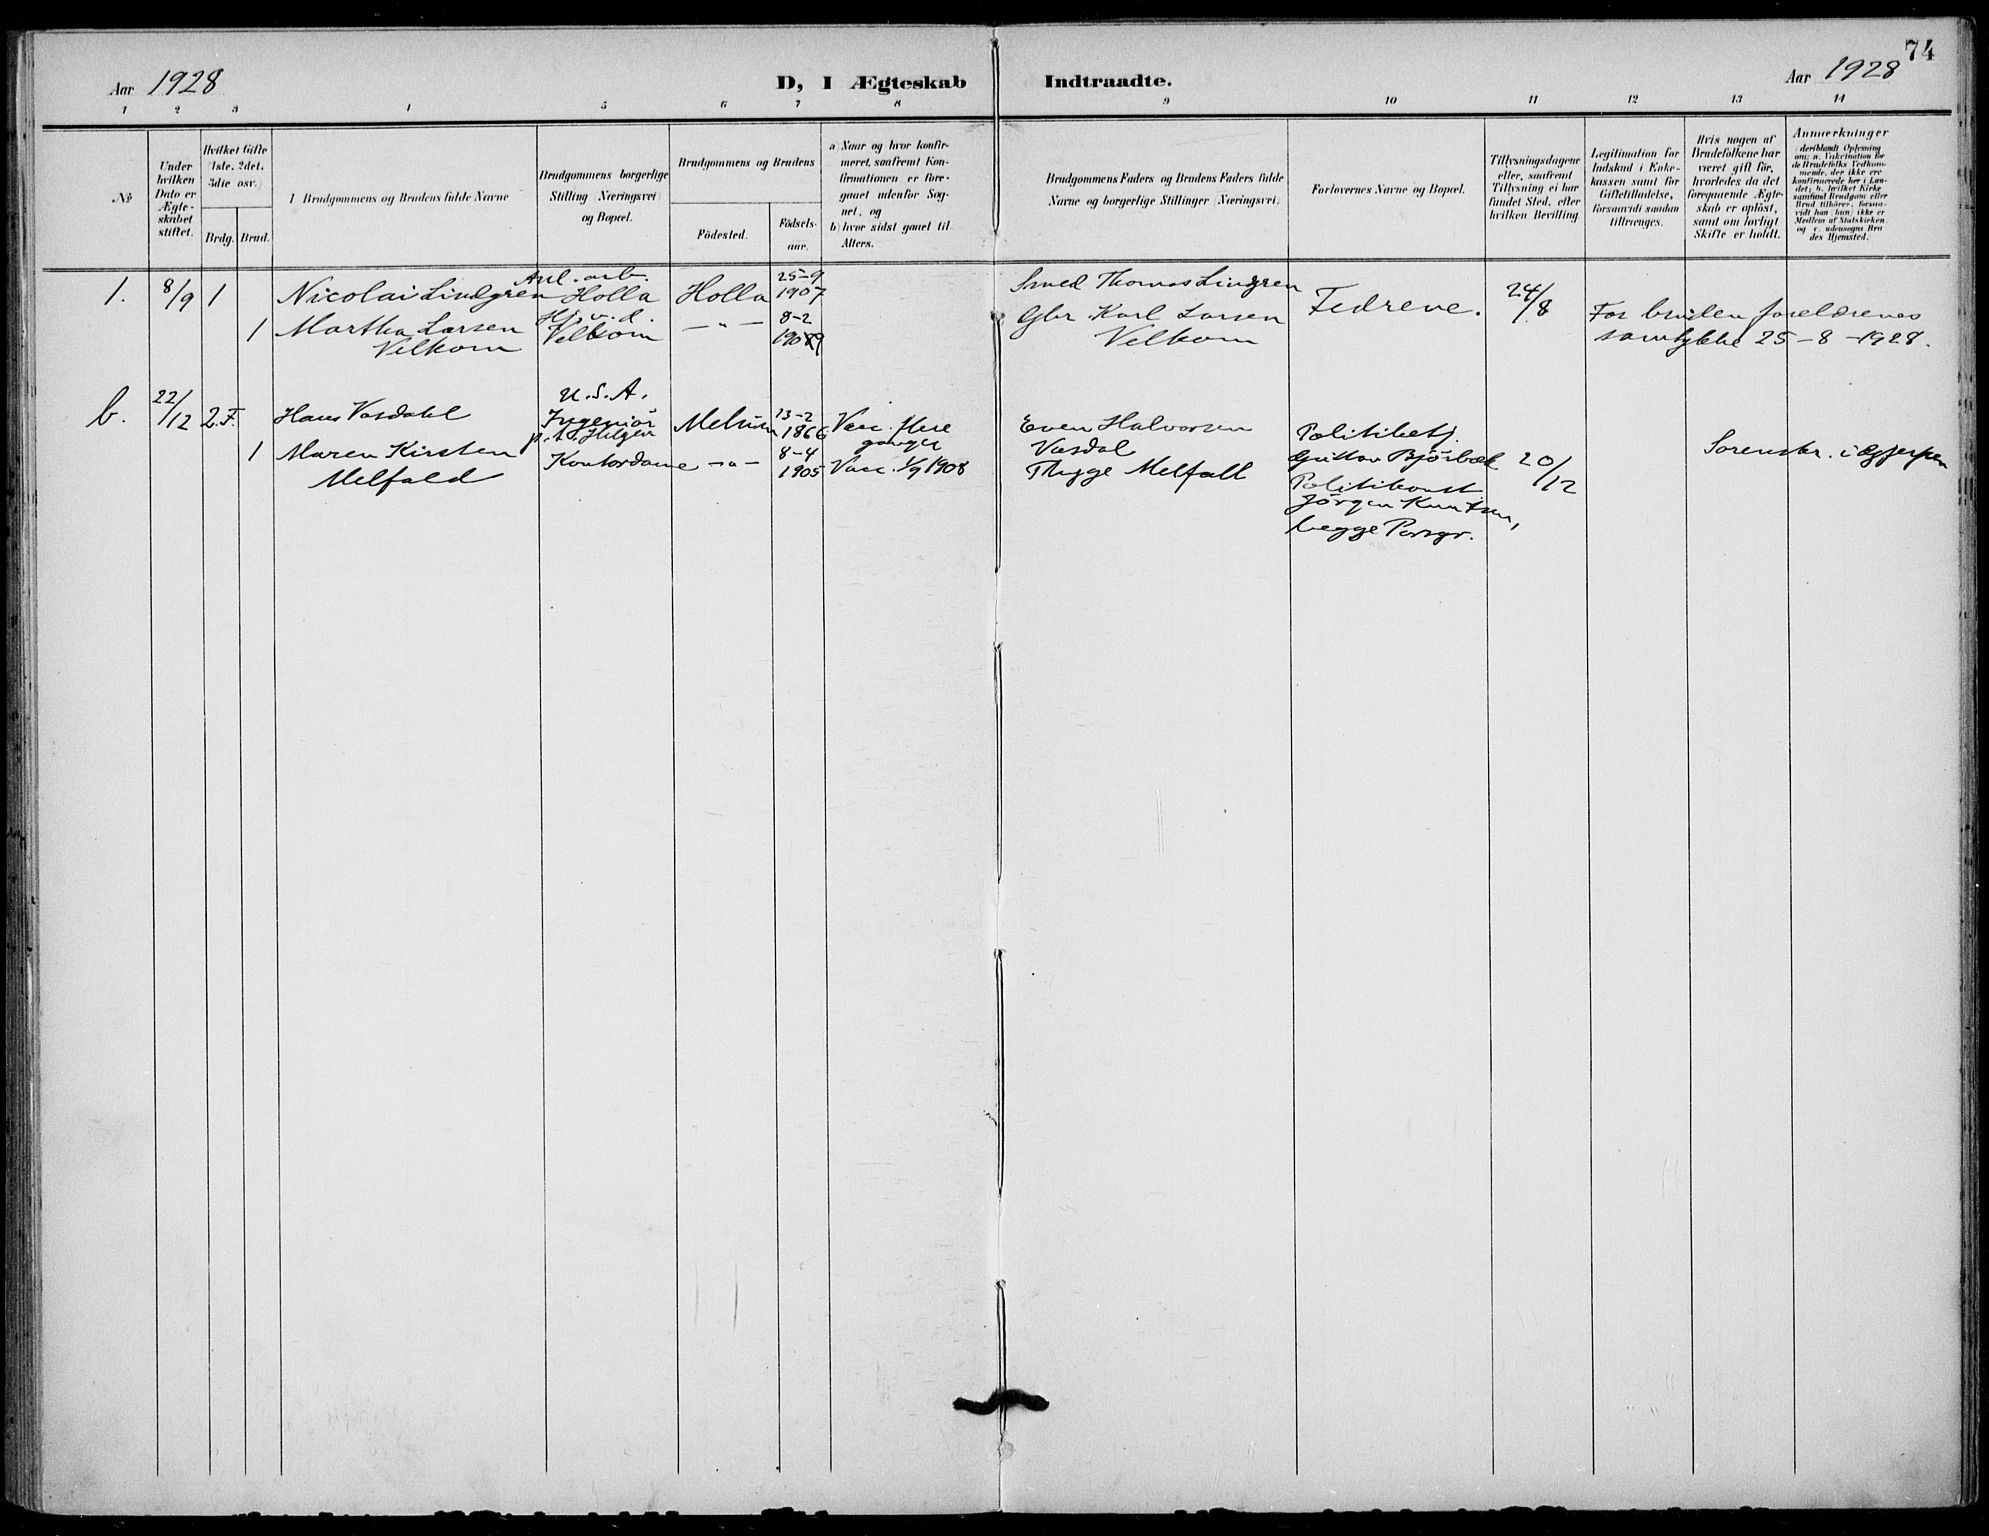 74
Aar 1928
D, I Ægteskab Indtraadte.
Aar 1928
1 2 3 4 5 6 7 8 9 10 11 12 13 14
No
Under
hvilken
Dato er
Ægte-
skabet
stiftet.
Hvilket Gifte
(1ste, 2det,
3die osv.)
Brdg. Brud.
Brudgommens og Brudens fulde Navne
Brudgommens borgerlige
Stilling (Næringsvei)
og Bopæl.
Brudgommens og Brudens
Födested.
Födsels-
aar.
a) Naar og hvor konfir-
meret, saafremt Kon-
firmationen er fore-
gaaet udenfor Sog-
net, og
b) hvor sidst gaaet til
Alters.
Brudgommens Faders og Brudens Faders fulde
Navne og borgerlige Stillinger (Næringsvei).
Forlovernes Navne og Bopæl.
Tillysningsdagene
eller, saafremt
Tillysning ei har
fundet Sted, efter
hvilken Bevilling.
Legitimation for
Indskud i Enke-
kassen samt for
Giftetilladelse,
forsaavidt saadan
tiltrænges.
Hvis nogen af
Brudefolkene har
været gift før,
hvorledes da det
foregaaende Ægte-
skab er opløst,
samt om lovligt
Skifte er holdt.
Anmærkninger
(deriblandt Oplysning
om: a. Vakcination for
de Brudefolks Vedkom-
mende, der ikke ere
konfirmerede her i Lan-
det; b. hvilket Kirke
samfund Brudgom eller
Brud tilhører, forsaa-
vidt han (hun) ikke er
Medlem af Statskirken,
og c. udensogns Bru
des Hjemsted.
1. 8/9 1 Nicolai Lindgren Anl. arb. Holla Holla 25-9 1907 Smed Thomas Lingren Fedrene. 24/8 For bruden forelærenes
1 Martha Larsen Hj. v. d. Velkom — " — 8-2 1909 Gbr Karl Larsen samtykke 25-8-1928.
Velkom Velkom
b. 22/12 2.F. Hans Vasdahl U.S.A. Ingeniör Melum 13-2 1866 Vacc. flere ganger Even Halvorsen Vasdal Politibetj.
1 Maren Kirsten Kontordame —"— 8-4 1905 Vacc. 1/9 1908 Thygge Melfald Gustav Björbæk 20/12 Sorenskr. i Gjerpen
Melfald Politikonst.
Jörgen Knutsen,
begge Porsgr.